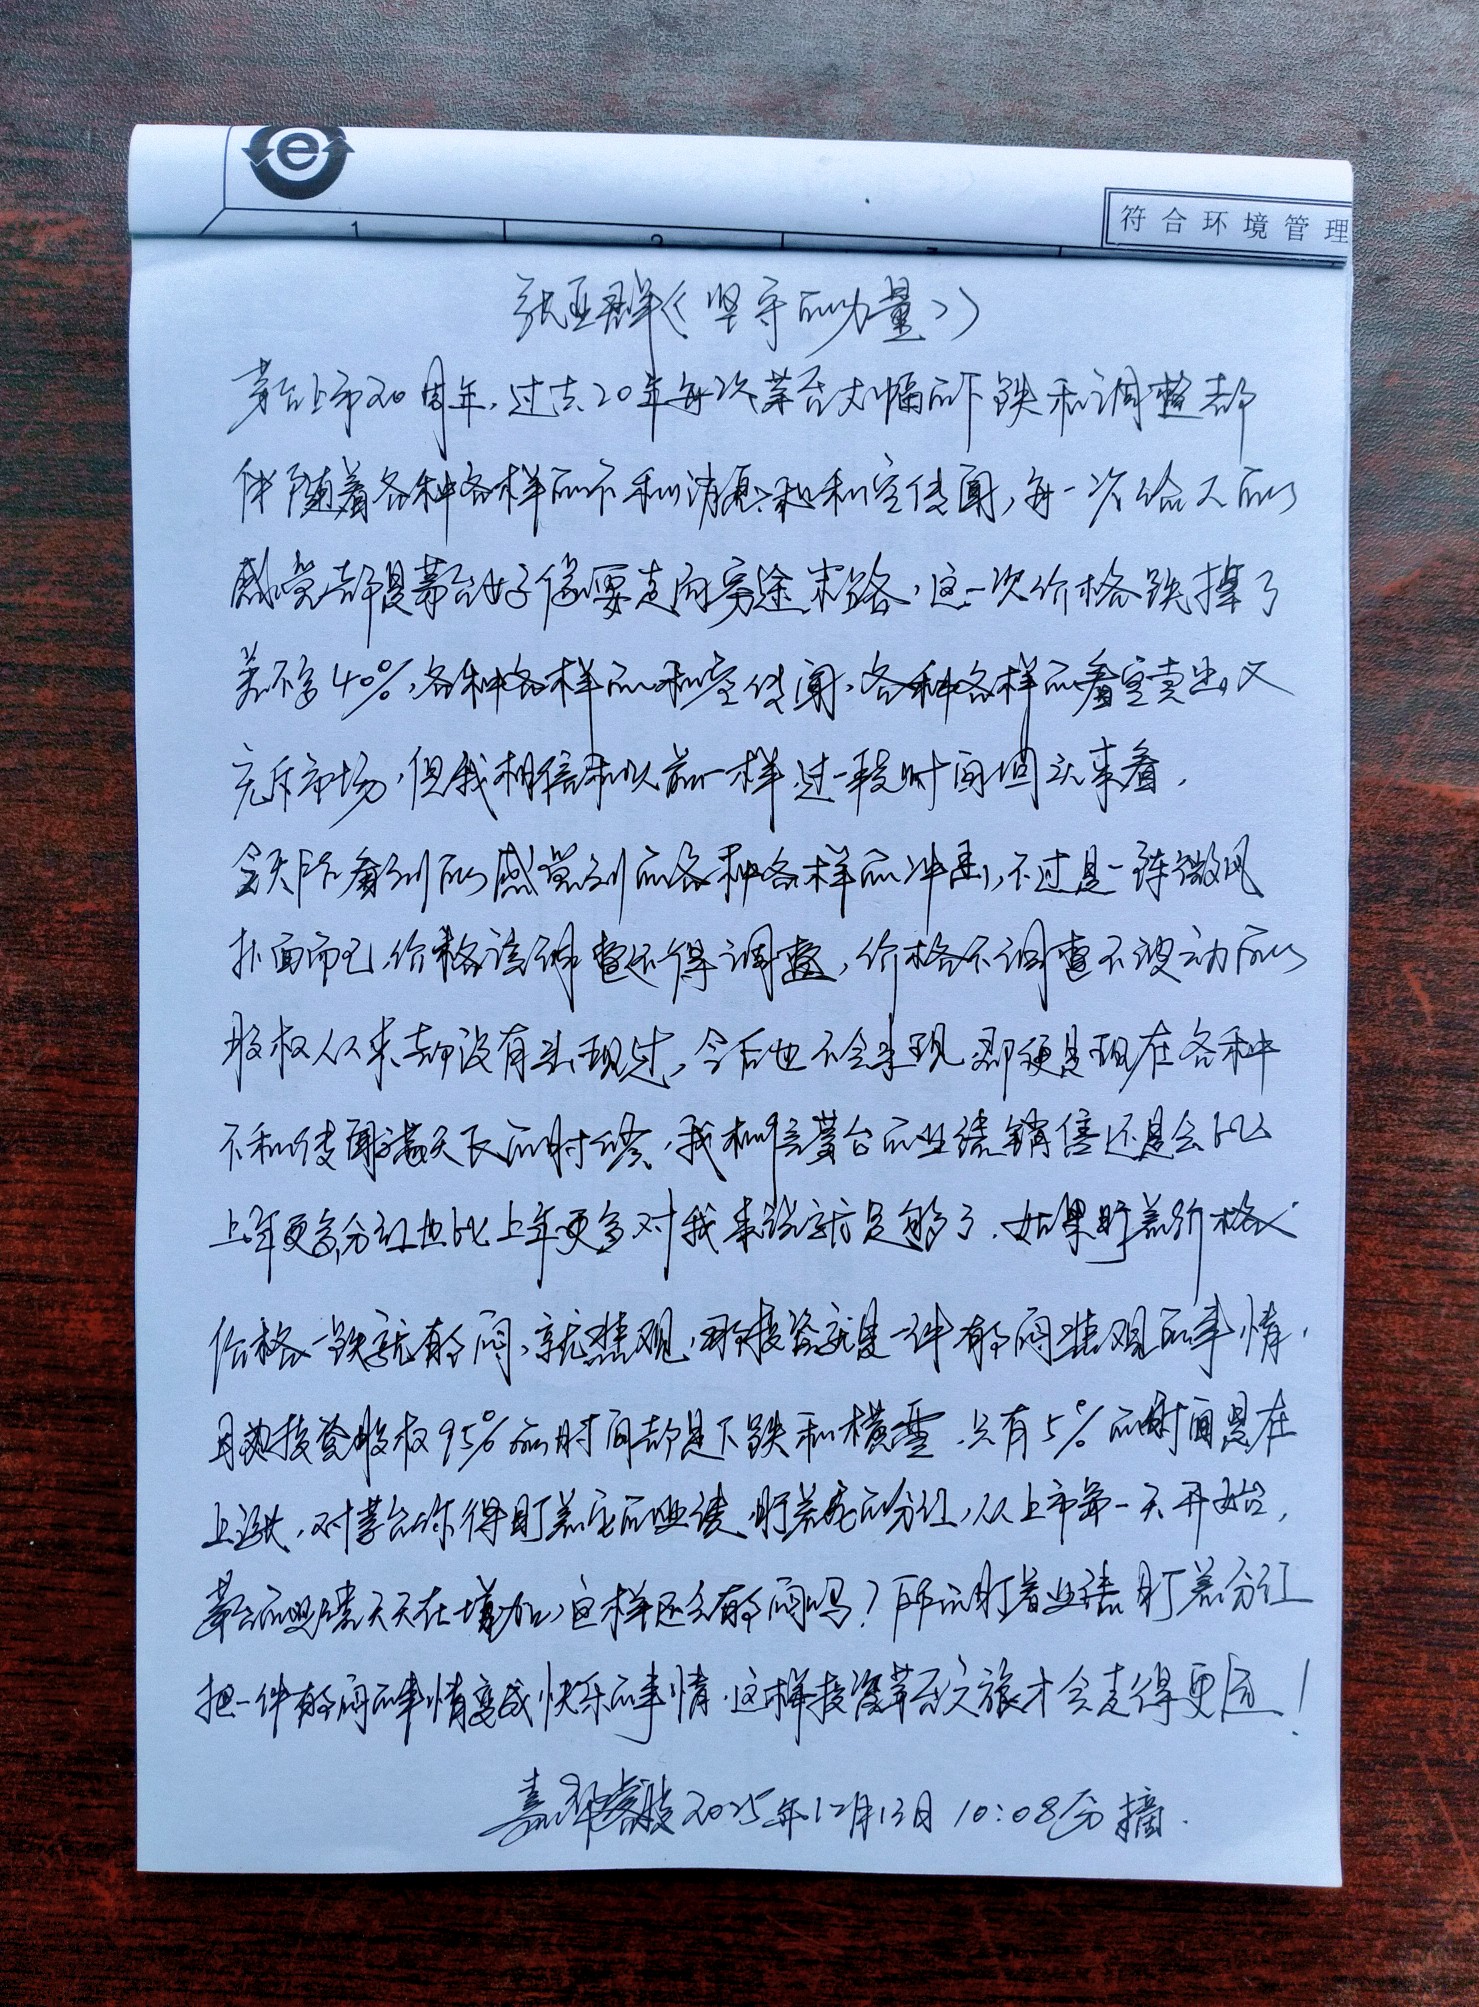 1 2 3
符合环境管理
张亚群《坚守的力量》
茅台上市20周年,过去20年每次茅台大幅的下跌和调整都
伴随着各种各样的不利消息和利空传闻,每一次给人的
感觉都是茅台好像要走向穷途末路,这一次价格跌掉了
差不多40%,各种各样的利空传闻,各种各样的看空卖出又
充斥市场,但我相信和以前一样过一段时间回头来看,
今天所看到的感觉到的各种各样的冲击,不过是一阵微风
扑面而已,价格该调整还得调整,价格不调整不波动的
股权从来都没有出现过,今后也不会出现,即便是现在各种
不利传闻满天飞的时候,我相信茅台的业绩销售还是会比
上年更多,分红也比上年更多对我来说就足够了.如果盯着价格
价格一跌就郁闷,就悲观,那投资就是一件郁闷悲观的事情,
因为投资股权95%的时间都是下跌和横盘,只有5%的时间是在
上涨,对茅台你得盯着它的业绩,盯着它的分红,从上市第一天开始,
茅台的业绩天天在增加,这样还会郁闷吗?所以盯着业绩盯着分红
把一件郁闷的事情变成快乐的事情,这样投资茅台之旅才会走得更远!
2025年12月13日10:08分摘.